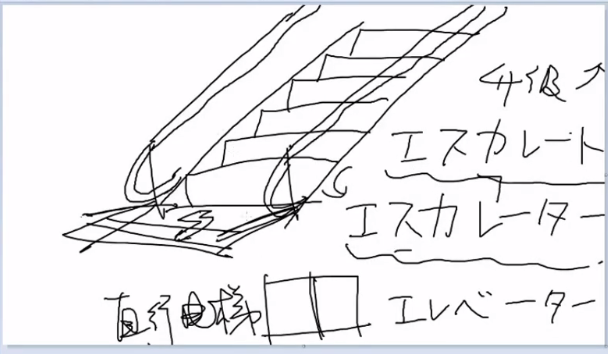 升级↑
エスカレート
エスカレーター
直行电梯 エレベーター